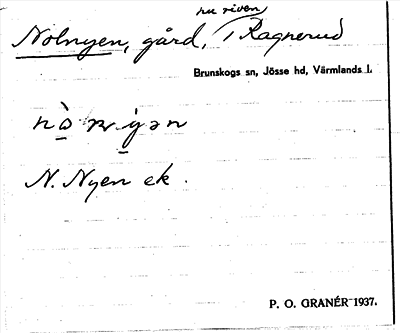 nu riven
Nolnyen, gård, i Ragnerud
Brunskogs sn, Jösse hd, Värmlands l.
N. Nyen ek.
P. O. GRANÉR 1937.